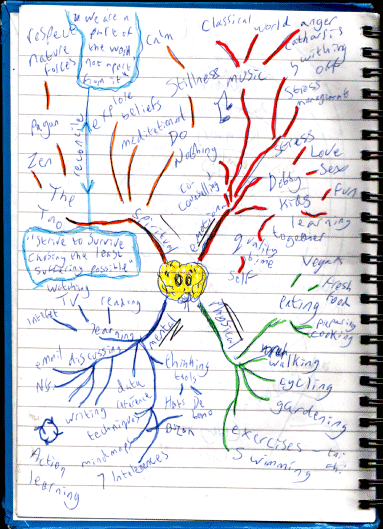 "We are a
part of
the world
not apart
from it"
respect
nature
forces
Calm
Pagan
Zen
The
Tao
reconcile
explore
beliefs
meditational
Do
Nothing
Stillness
spiritual
"I strive to survive
causing the least
suffering possible"
Classical
world
anger
catharsis
music
Stress
management
stress
Co-
counselling
emotional
Love
Sex
Debby
Fun
Kids
learning
together
quality
time
Self
watching
TV
reading
Internet
learning
mental
email
discussing
NGs
writing
data
techniques
mindmaps
7 Intelligences
Action
learning
thinking
tools
Hats De
Bono
physical
Vegan
fresh
food
eating
preparing
cooking
walking
cycling
gardening
exercises - tai
chi
Swimming